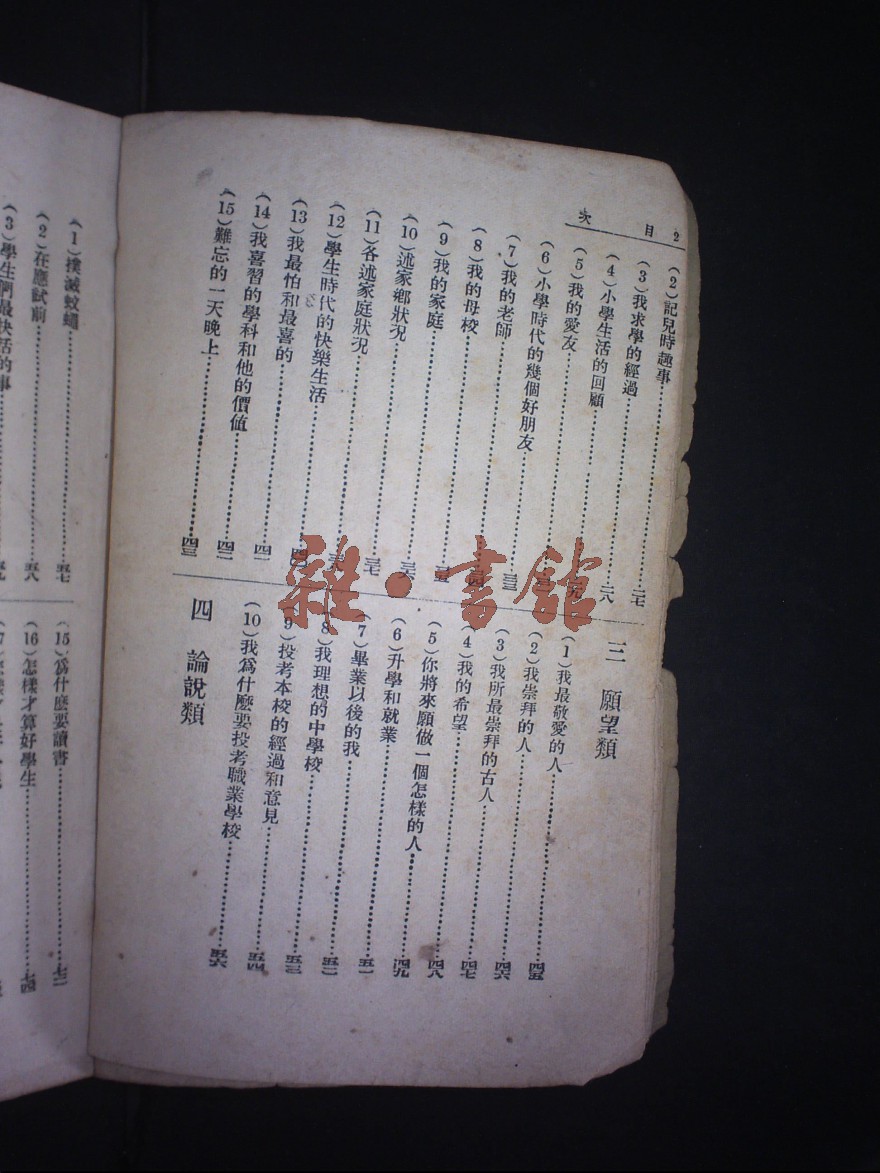 目次 2
(2)記兒時趣事………二七
(3)我求學的經過………二八
(4)小學生活的回顧………二九
(5)我的愛友
(6)小學時代的幾個好朋友………三三
(7)我的老師………四
(8)我的母校………三五
(9)我的家庭………三六
(10)述家鄉狀況………三七
(11)各述家庭狀況
(12)學生時代的快樂生活
(13)我最怕和最喜的………四一
(14)我喜習的學科和他的價值………四二
(15)難忘的一天晚上………四三
三 願望類
(1)我最敬愛的人………四五
(2)我崇拜的人………四六
(3)我所最崇拜的古人………四七
(4)我的希望………四八
(5)你將來願做一個怎樣的人………四九
(6)升學和就業………五一
(7)畢業以後的我………五二
(8)我理想的中學校………五三
(9)投考本校的經過和意見………五四
(10)我爲什麽要投考職業學校………五六
四 論說類
(1)撲滅蚊蠅………五七
(2)在應試前………五八
(3)學生們最快活的事………五九
(15)爲什麽要讀書………七二
(16)怎樣才算好學生………七四
雜·書館